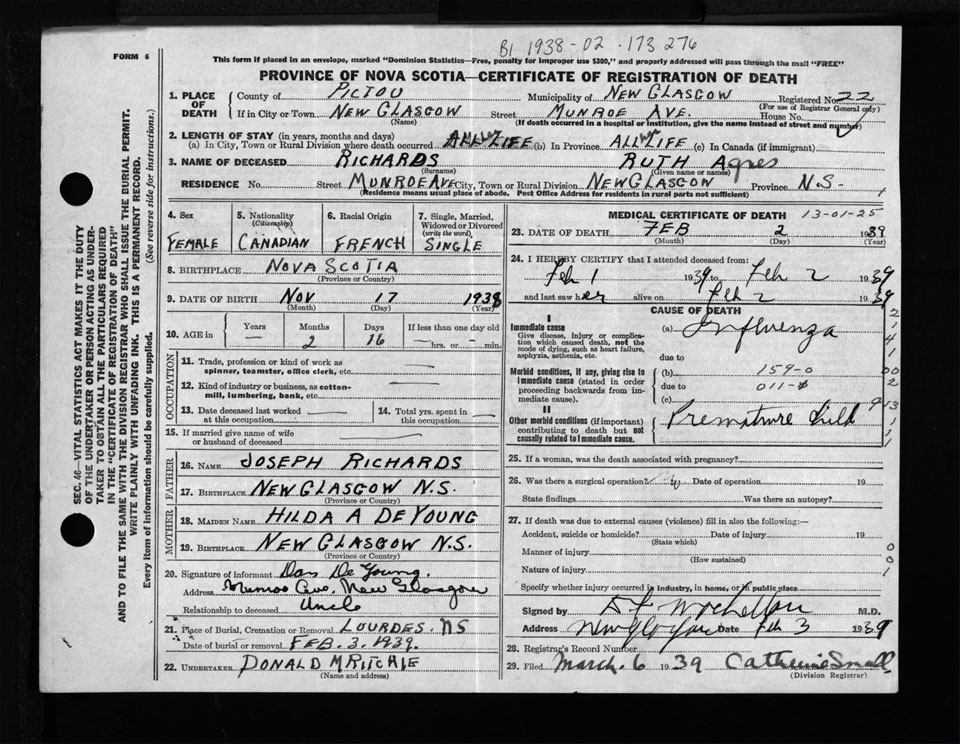 B1 1938-02-173276
FORM 6
This form if placed in an envelope, marked "Dominion Statistics—Free, penalty for improper use $300," and properly addressed will pass through the mail "FREE"
PROVINCE OF NOVA SCOTIA—CERTIFICATE OF REGISTRATION OF DEATH
SEC. 46—VITAL STATISTICS ACT MAKES IT THE DUTY
OF THE UNDERTAKER OR PERSON ACTING AS UNDER-
TAKER TO OBTAIN ALL THE PARTICULARS REQUIRED
IN THE "CERTIFICATE OF REGISTRATION OF DEATH"
AND TO FILE THE SAME WITH THE DIVISION REGISTRAR WHO SHALL ISSUE THE BURIAL PERMIT.
WRITE PLAINLY WITH UNFADING INK. THIS IS A PERMANENT RECORD.
Every item of information should be carefully supplied. (See reverse side for instructions.)
1. PLACE OF DEATH
County of PICTOU Municipality of NEW GLASGOW Registered No. 22
(For use of Registrar General only)
If in City or Town NEW GLASGOW Street MUNROE AVE. House No.
(Name) (If death occurred in a hospital or institution, give the name instead of street and number)
2. LENGTH OF STAY (in years, months and days)
(a) In City, Town or Rural Division where death occurred ALL LIFE (b) In Province ALL LIFE (c) In Canada (if immigrant)
3. NAME OF DECEASED RICHARDS RUTH Agnes
(Surname) (Given name or names)
RESIDENCE No. Street MUNROE AVE City, Town or Rural Division NEW GLASGOW Province N.S.
(Residence means usual place of abode. Post Office Address for residents in rural parts not sufficient)
4. Sex FEMALE
5. Nationality (Citizenship) CANADIAN
6. Racial Origin FRENCH
7. Single, Married, Widowed or Divorced (write the word) SINGLE
8. BIRTHPLACE NOVA SCOTIA
(Province or Country)
9. DATE OF BIRTH NOV 17 1938
(Month) (Day) (Year)
10. AGE in Years — Months 2 Days 16 If less than one day old —hrs. or —min.
OCCUPATION
11. Trade, profession or kind of work as
spinner, teamster, office clerk, etc. —
12. Kind of industry or business, as cotton-
mill, lumbering, bank, etc. —
13. Date deceased last worked at this occupation —
14. Total yrs. spent in this occupation —
15. If married give name of wife
or husband of deceased —
FATHER
16. NAME JOSEPH RICHARDS
17. BIRTHPLACE NEW GLASGOW N.S.
(Province or Country)
MOTHER
18. MAIDEN NAME HILDA A DE YOUNG
19. BIRTHPLACE NEW GLASGOW N.S.
(Province or Country)
20. Signature of informant Dan De Young.
Address Munroe Ave, New Glasgow
Relationship to deceased Uncle
21. Place of Burial, Cremation or Removal LOURDES. NS
Date of burial or removal FEB. 3. 1939.
22. UNDERTAKER DONALD M RITCHIE
(Name and address)
MEDICAL CERTIFICATE OF DEATH 13-01-25
23. DATE OF DEATH FEB 2 1939
(Month) (Day) (Year)
24. I HEREBY CERTIFY that I attended deceased from:
Feb 1 1939 to Feb 2 1939
and last saw her alive on Feb 2 1939
CAUSE OF DEATH
I
Immediate cause
Give disease, injury or complica-
tion which caused death, not the
mode of dying, such as heart failure,
asphyxia, asthenia, etc.
(a) Influenza
due to
Morbid conditions, if any, giving rise to
immediate cause (stated in order
proceeding backwards from im-
mediate cause).
(b) 159-0
due to 011-
(c)
II
Other morbid conditions (if important)
contributing to death but not
causally related to immediate cause.
Premature
25. If a woman, was the death associated with pregnancy?
26. Was there a surgical operation? Date of operation 19
State findings Was there an autopsy?
27. If death was due to external causes (violence) fill in also the following:—
Accident, suicide or homicide? Date of injury 19
(State which)
Manner of injury
(How sustained)
Nature of injury
Specify whether injury occurred in industry, in home, or in public place
Signed by M.D.
Address New Glasgow Date Feb 3 1939
28. Registrar's Record Number
29. Filed March 6 1939 Catherine Small
(Division Registrar)